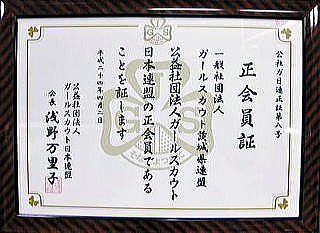 公社ガ日連正証第八号
正会員証
一般社団法人
ガールスカウト茨城県連盟
公益社団法人ガールスカウト
日本連盟の正会員である
ことを証します
平成二十四年四月二日
公益社団法人
ガールスカウト日本連盟
会長 浅野万里子